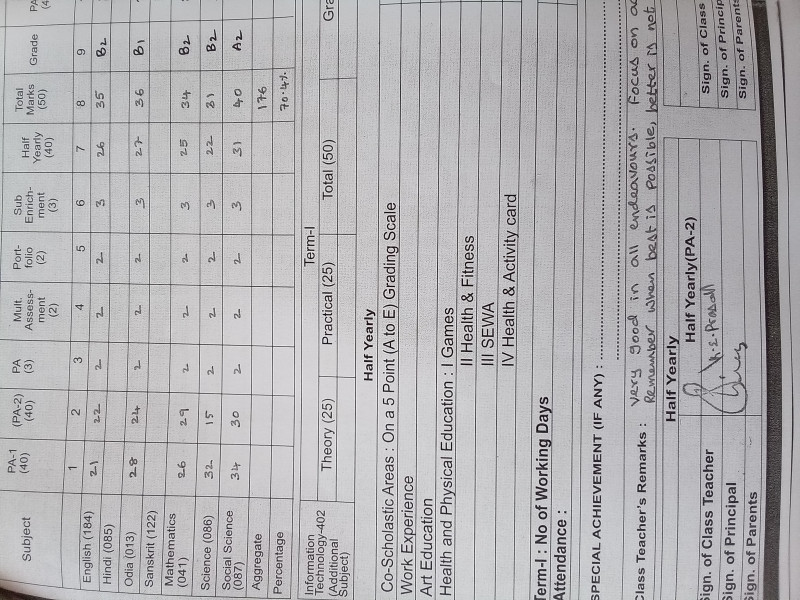 Subject PA-1 (40) (PA-2) (40) PA (3) Mult. Assess-ment (2) Port-folio (2) Sub Enrich-ment (3) Half Yearly (40) Total Marks (50) Grade
1 2 3 4 5 6 7 8 9
English (184) 21 22 2 2 2 3 26 35 B2
Hindi (085)
Odia (013) 28 24 2 2 2 3 27 36 B1
Sanskrit (122)
Mathematics (041) 26 29 2 2 2 3 25 34 B2
Science (086) 32 15 2 2 2 3 22 31 B2
Social Science (087) 34 30 2 2 2 3 31 40 A2
Aggregate 176
Percentage 70.4%
Term-I
Information Technology-402 (Additional Subject) Theory (25) Practical (25) Total (50)
Half Yearly
Co-Scholastic Areas : On a 5 Point (A to E) Grading Scale
Work Experience
Art Education
Health and Physical Education : I Games
II Health & Fitness
III SEWA
IV Health & Activity card
Term-I : No of Working Days
Attendance :
SPECIAL ACHIEVEMENT (IF ANY) :
Class Teacher's Remarks : very good in all endeavours. Focus on
Remember when best is possible, better is not
Half Yearly
Half Yearly(PA-2)
Sign. of Class Teacher Sign. of Class
Sign. of Principal Sign. of Princip
Sign. of Parents Sign. of Parents